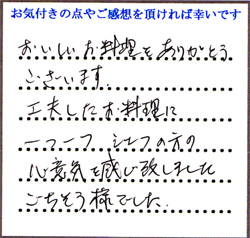 お気付きの点やご感想を頂ければ幸いです
おいしいお料理をありがとう
ございます.
工夫したお料理に
一つ一つ シェフの方の
心意気を感じ致しました
ごちそう様でした.